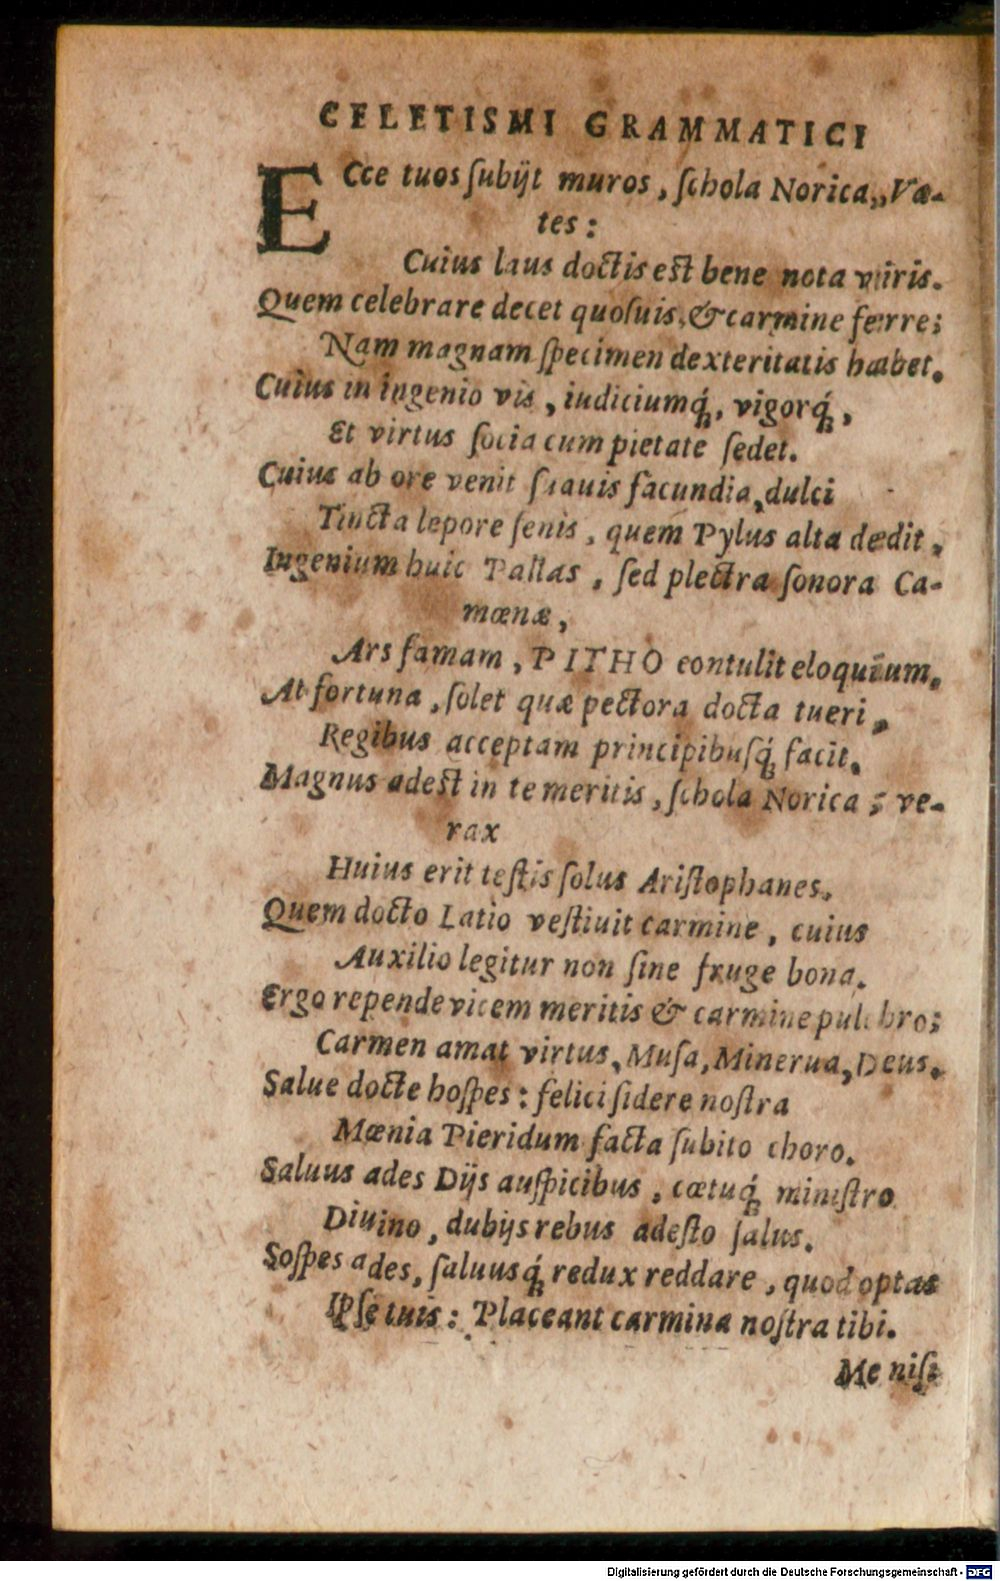 CELETISMI GRAMMATICI
ECce tuos ſubijt muros, ſchola Norica, Væ-
tes:
Cuius laus doctis eſt bene nota viris.
Quem celebrare decet quoſuis, & carmine ferre;
Nam magnam ſpecimen dexteritatis habet.
Cuius in ingenio vis, iudiciumq́;, vigorq́;,
Et virtus ſocia cum pietate ſedet.
Cuius ab ore venit ſuauis facundia, dulci
Tincta lepore ſenis, quem Pylus alta dedit,
Ingenium huic Pallas, ſed plectra ſonora Ca-
mœnæ,
Ars famam, PITHO contulit eloquium.
At fortuna, ſolet quæ pectora docta tueri,
Regibus acceptam principibuſq́; facit.
Magnus adeſt in te meritis, ſchola Norica; ve-
rax
Huius erit teſtis ſolus Ariſtophanes.
Quem docto Latio veſtiuit carmine, cuius
Auxilio legitur non ſine fruge bona.
Ergo repende vicem meritis & carmine pulchro;
Carmen amat virtus, Muſa, Minerua, Deus.
Salue docte hoſpes: felici ſidere noſtra
Mœnia Pieridum facta ſubito choro.
Saluus ades Dijs auſpicibus, cœtuq́; miniſtro
Diuino, dubijs rebus adeſto ſalus.
Soſpes ades, ſaluusq́; redux reddare, quod optas
Ipſe tuis: Placeant carmina noſtra tibi.
Me niſi
Digitalisierung gefördert durch die Deutsche Forschungsgemeinschaft - DFG